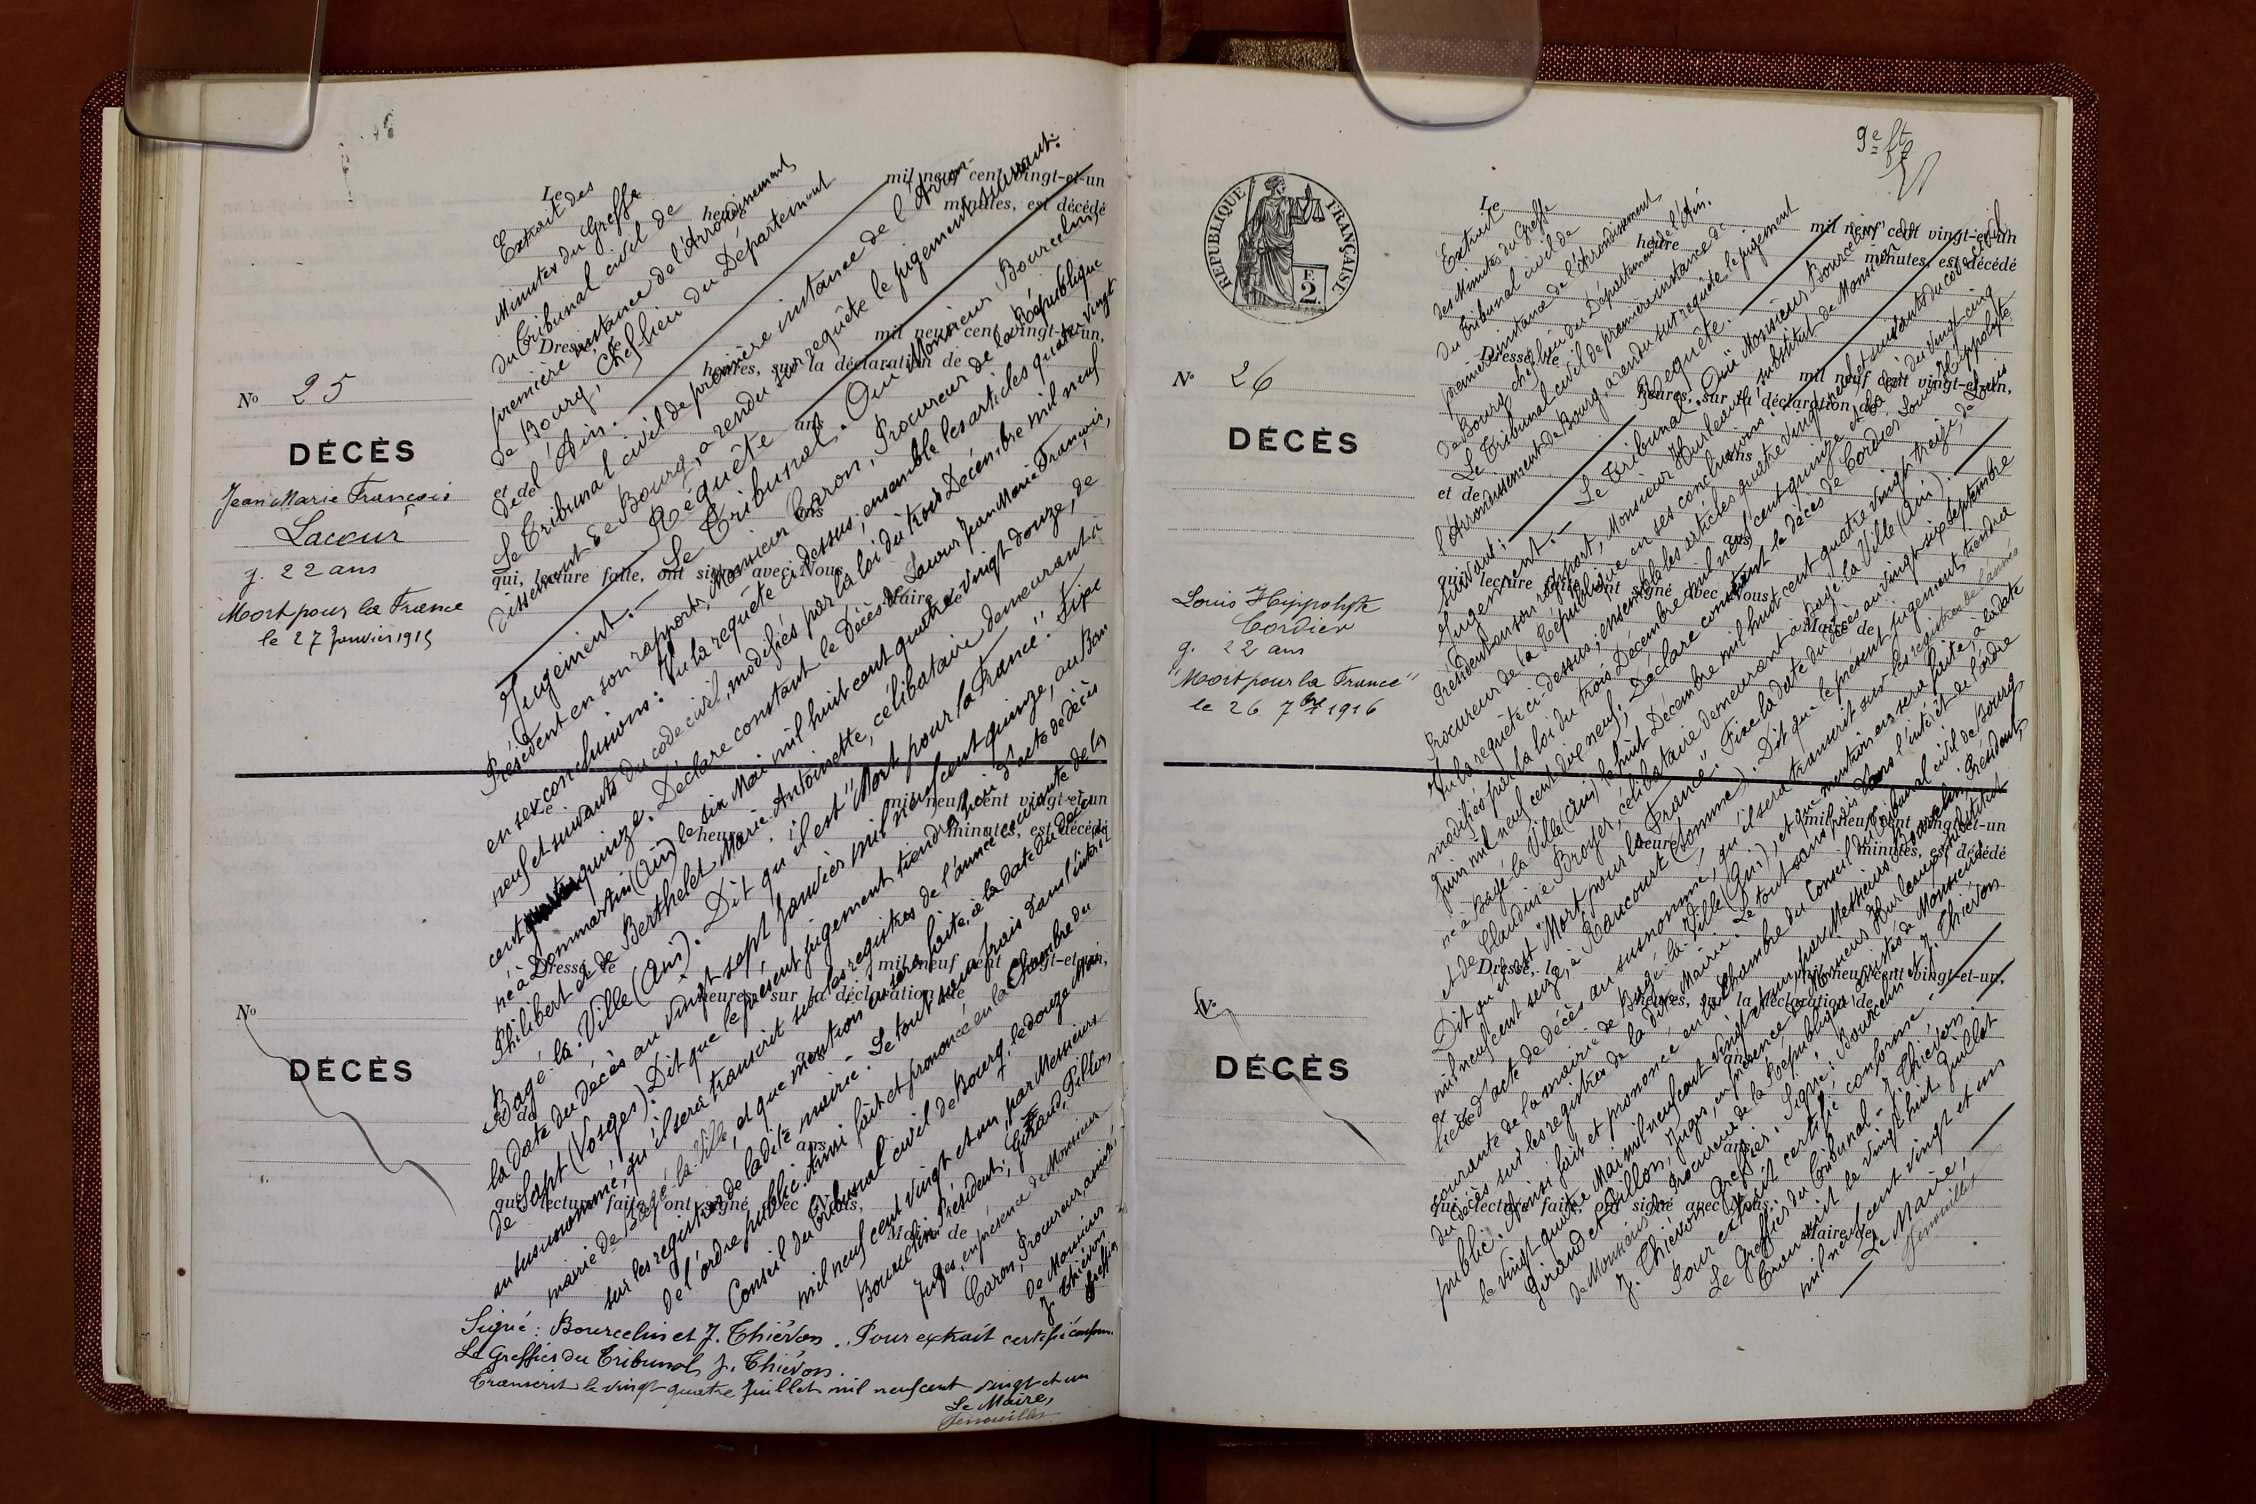 N° 25
DÉCÈS
Jean Marie François
Lacour
g. 22 ans
Mort pour la France
le 27 Janvier 1915
N°
DÉCÈS
Le mil neuf cent vingt-et-un
heure minutes, est décédé
Dressé, le mil neuf cent vingt-et-un,
heures, sur la déclaration de
ans
et de
ans
qui, lecture faite, ont signé avec Nous,
Maire de
Le mil neuf cent vingt-et-un
heure minutes, est décédé
Dressé, le mil neuf cent vingt-et-un,
heures, sur la déclaration de
et de
ans
qui, lecture faite, ont signé avec Nous,
Maire de
Extrait des
Minutes du Greffe
du Tribunal civil de
première instance de l'Arrondissement
de Bourg, chef lieu du Département
de l'Ain.
Le Tribunal civil de première instance de l'Arron-
dissement de Bourg, a rendu sur requête le jugement suivant:
Requête
Jugement. — Le Tribunal. Ouï Monsieur Bourcelin,
Président en son rapport, Monsieur Caron, Procureur de la République
en ses conclusions: Vu la requête ci-dessus; ensemble les articles quatre vingt
neuf et suivants du code civil, modifiés par la loi du trois Décembre mil neuf
cent quinze. Déclare constant le Décès de Lacour Jean Marie François,
né à Dommartin (Ain) le six Mai mil huit cent quatre vingt douze, de
Philibert et de Berthelet Marie Antoinette, célibataire demeurant à
Bagé-la-Ville (Ain). Dit qu'il est "Mort pour la France". Fixe
la date du décès au vingt sept Janvier mil neuf cent quinze, au Ban
de Sapt (Vosges). Dit que le présent jugement tiendra lieu d'acte de décès
au susnommé, qu'il sera transcrit sur les registres de l'année courante de la
mairie de Bagé-la-Ville, et que mention en sera faite, à la date du décès
sur les registres de ladite mairie. Le tout sans frais dans l'intérêt
de l'ordre public. Ainsi fait et prononcé en la Chambre du
Conseil du Tribunal civil de Bourg, le douze Mai
mil neuf cent vingt et un, par Messieurs
Bourcelin Président, Girand, Pillon
Juges, en présence de Monsieur
Caron, Procureur, assisté
de Monsieur
J. Thiévon
Greffier
Signé: Bourcelin et J. Thiévon. Pour extrait certifié conforme.
Le Greffier du Tribunal, J. Thiévon.
Transcrit le vingt quatre Juillet mil neuf cent vingt et un
Le Maire,
9e ft
RÉPUBLIQUE FRANÇAISE
2 F
N° 26
DÉCÈS
Louis Hippolyte
Cordier
g. 22 ans
"Mort pour la France"
le 26 7bre 1916
N°
DÉCÈS
Le mil neuf cent vingt-et-un
heure minutes, est décédé
Dressé, le mil neuf cent vingt-et-un,
heures, sur la déclaration de
ans
et de
ans
qui, lecture faite, ont signé avec Nous,
Maire de
mil neuf cent vingt-et-un
heure minutes, est décédé
Dressé, le mil neuf cent vingt-et-un,
heures, sur la déclaration de
ans
et de
ans
qui, lecture faite, ont signé avec Nous,
Maire de
Extrait
des Minutes du Greffe
du Tribunal civil de
première instance de l'Arrondissement
de Bourg, chef lieu du Département de l'Ain.
Le Tribunal civil de première instance de
l'Arrondissement de Bourg, a rendu sur requête le jugement
suivant: Requête.
Jugement: — Le Tribunal. Ouï Monsieur Bourcelin,
Président en son rapport, Monsieur Hurleaux, substitut de Monsieur le
Procureur de la République en ses conclusions;
Vu la requête ci-dessus; ensemble les articles quatre vingt neuf et suivants du code civil,
modifiés par la loi du trois Décembre mil neuf cent quinze et la loi du vingt-cinq
Juin mil neuf cent dix neuf; Déclare constant le décès de Cordier Louis Hippolyte
né à Bagé la Ville (Ain) le huit Décembre mil huit cent quatre vingt treize, de Louis
et de Claudine Broyer, célibataire demeurant à Bagé-la-Ville (Ain).
Dit qu'il est "Mort pour la France". Fixe la date du décès au vingt six Septembre
mil neuf cent seize, à Rancourt (Somme). Dit que le présent jugement tiendra
lieu d'acte de décès au susnommé, qu'il sera transcrit sur les registres de l'année
courante de la mairie de Bagé-la-Ville (Ain), et que mention en sera faite, à la date
du décès sur les registres de la dite Mairie. Le tout sans frais dans l'intérêt de l'ordre
public. Ainsi fait et prononcé en la Chambre du Conseil du Tribunal civil de Bourg
le vingt quatre Mai mil neuf cent vingt et un, par Messieurs Bourcelin, Président,
Girand et Pillon, Juges, en présence de Monsieur Hurleaux, substitut
de Monsieur le Procureur de la République, assistés de Monsieur
J. Thiévon, Greffier. Signé: Bourcelin et J. Thiévon
Pour extrait certifié conforme.
Le Greffier du Tribunal — J. Thiévon.
Transcrit le vingt huit Juillet
mil neuf cent vingt et un
Le Maire,